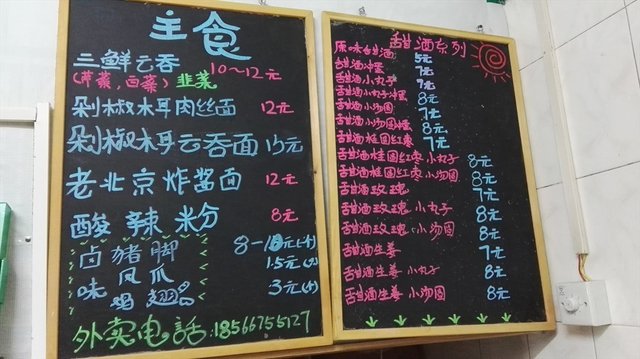 主食
三鲜云吞 10～12元
(芹菜,白菜) 韭菜
剁椒木耳肉丝面 12元
剁椒木耳云吞面 15元
老北京炸酱面 12元
酸辣粉 8元
卤猪脚 8-10元(个)
凤爪 1.5元(个)
味鸡翅 3元(个)
外卖电话:18566755127
甜酒系列
原味甜酒 5元
甜酒冲蛋 7元
甜酒小丸子 7元
甜酒小丸子冲蛋 8元
甜酒小汤圆 7元
甜酒小汤圆蛋 8元
甜酒桂圆红枣 7元
甜酒桂圆红枣小丸子 8元
甜酒桂圆红枣小汤圆 8元
甜酒玫瑰 7元
甜酒玫瑰小丸子 8元
甜酒玫瑰小汤圆 8元
甜酒生姜 7元
甜酒生姜小丸子 8元
甜酒生姜小汤圆 8元